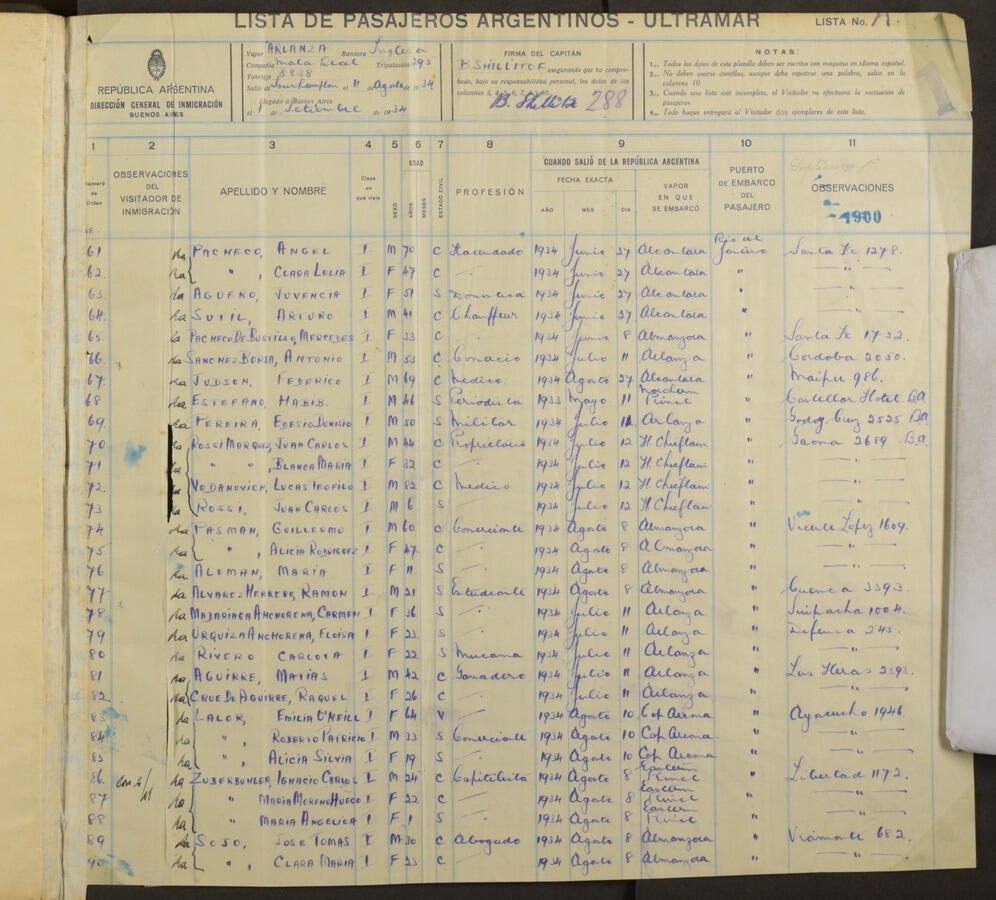 LISTA DE PASAJEROS ARGENTINOS - ULTRAMAR LISTA No.
REPÚBLICA ARGENTINA
DIRECCIÓN GENERAL DE INMIGRACIÓN
BUENOS AIRES
Vapor ARLANZA Bandera Inglesa
Compañía Mala Real Tripulación 393
Tonelaje 8838
Salió de Southampton el 11 de Agosto de 1934
Llegado a Buenos Aires
el 1 de Setiembre de 1934
FIRMA DEL CAPITÁN
B SHILLITOE asegurando que ha comprobado, bajo su responsabilidad personal, los datos de las
columnas 3, 4, 5, 6, 7, 8, 9, 10.
B. Shillitoe 288
NOTAS:
1.— Todos los datos de esta planilla deben ser escritos con máquina en idioma español.
2.— No deben usarse comillas, aunque deba repetirse una palabra, salvo en la columna 10.
3.— Cuando una lista esté incompleta, el Visitador no efectuará la revisación de pasajeros.
4.— Todo buque entregará al Visitador dos ejemplares de esta lista.
1 2 3 4 5 6 7 8 9 10 11
Número de Orden
OBSERVACIONES DEL VISITADOR DE INMIGRACIÓN
APELLIDO Y NOMBRE
Clase en que viaja
SEXO
EDAD
AÑOS
MESES
ESTADO CIVIL
PROFESIÓN
CUANDO SALIÓ DE LA REPÚBLICA ARGENTINA
FECHA EXACTA
AÑO MES DIA
VAPOR EN QUE SE EMBARCÓ
PUERTO DE EMBARCO DEL PASAJERO
OBSERVACIONES
1900
61 PACHECO, ANGEL I M 70 C Hacendado 1934 Junio 27 Alcantara Rio de Janeiro Santa Fe 1278.
62. " , CLARA LELIA I F 47 C 1934 Junio 27 Alcantara " "
63. AGUERO, JUVENCIA I F 51 S Domestica 1934 Junio 27 Alcantara "
64. SUTIL, ARTURO I M 41 C Chauffeur 1934 Junio 27 Alcantara " "
65. PACHECO DE BUSTILLO, MERCEDES I F 33 C 1934 Junio 8 Almanzora " Santa Fe 1732
66. SANCHEZ BORSA, ANTONIO I M 53 C Comercio 1934 Julio 11 Arlanza " Cordoba 2050.
67 JUDSON, FEDERICO I M 69 C Medico. 1934 Agosto 27 Alcantara " Maipu 986.
68 ESTEFANO, HABIB. I M 46 S Periodista 1933 Mayo 11 Northern Prince " Castellar Hotel B.A
69. PEREIRA, EDESIO DIONISIO I M 50 S Militar 1934 Julio 11 Arlanza " Godoy Cruz 2525 B.A
70 ROSSI MARQUEZ, JUAN CARLOS I M 44 C Propietario 1934 Julio 12 H. Chieftain " Gaona 2689 B.A.
71 " " , BLANCA MARIA I F 32 C 1934 Julio 12 H. Chieftain " "
72. VODANOVICH, LUCAS TEOFILO I M 82 C Medico 1934 Julio 12 H. Chieftain " "
73 ROSSI, JUAN CARLOS I M 6 S 1934 Julio 12 H Chieftain " "
74 PASMAN, GUILLERMO I M 60 C Comerciante 1934 Agosto 8 Almanzora " Vicente Lopez 1609.
75 " , ALICIA RODRIGUEZ I F 47 C 1934 Agosto 8 Almanzora " "
76 ALEMAN, MARIA I F 11 S 1934 Agosto 8 Almanzora " "
77 ALVAREZ HERRERO, RAMON I M 21 S Estudiante 1934 Agosto 8 Almanzora " Cuenca 3393
78 MADARIAGA ANCHORENA, CARMEN I F 36 S 1934 Julio 11 Arlanza " Suipacha 1004.
79 URQUIZA ANCHORENA, ELOISA I F 23 S 1934 Julio 11 Arlanza " Defensa 245.
80 RIVERO CARLOTA I F 22 S Mucama 1934 Julio 11 Arlanza " "
81 AGUIRRE, MATIAS I M 42 C Ganadero 1934 Julio 11 Arlanza " Las Heras 2393.
82 CRUE DE AGUIRRE, RAQUEL I F 26 C 1934 Julio 11 Arlanza " "
83 LALOR, EMILIA O'NEILL I F 64 V 1934 Agosto 10 Cap Arcona " Ayacucho 1946
84 " , ROBERTO PATRICIO I M 33 S Comerciante 1934 Agosto 10 Cap Arcona " "
85 " , ALICIA SILVIA I F 19 S 1934 Agosto 10 Cap Arcona " "
86. ZUBERBUHLER, IGNACIO CARLOS I M 24 C Capitalista 1934 Agosto 8 Eastern Prince " Libertad 1172.
87 " MARIA MORENO HUEGO I F 22 C 1934 Agosto 8 Eastern Prince " "
88 " MARIA ANGELICA I F 1 S 1934 Agosto 8 Eastern Prince " "
89 SOJO, JOSE TOMAS I M 30 C Abogado 1934 Agosto 8 Almanzora " Viamonte 682.
90 " , CLARA MARIA I F 23 C 1934 Agosto 8 Almanzora " "